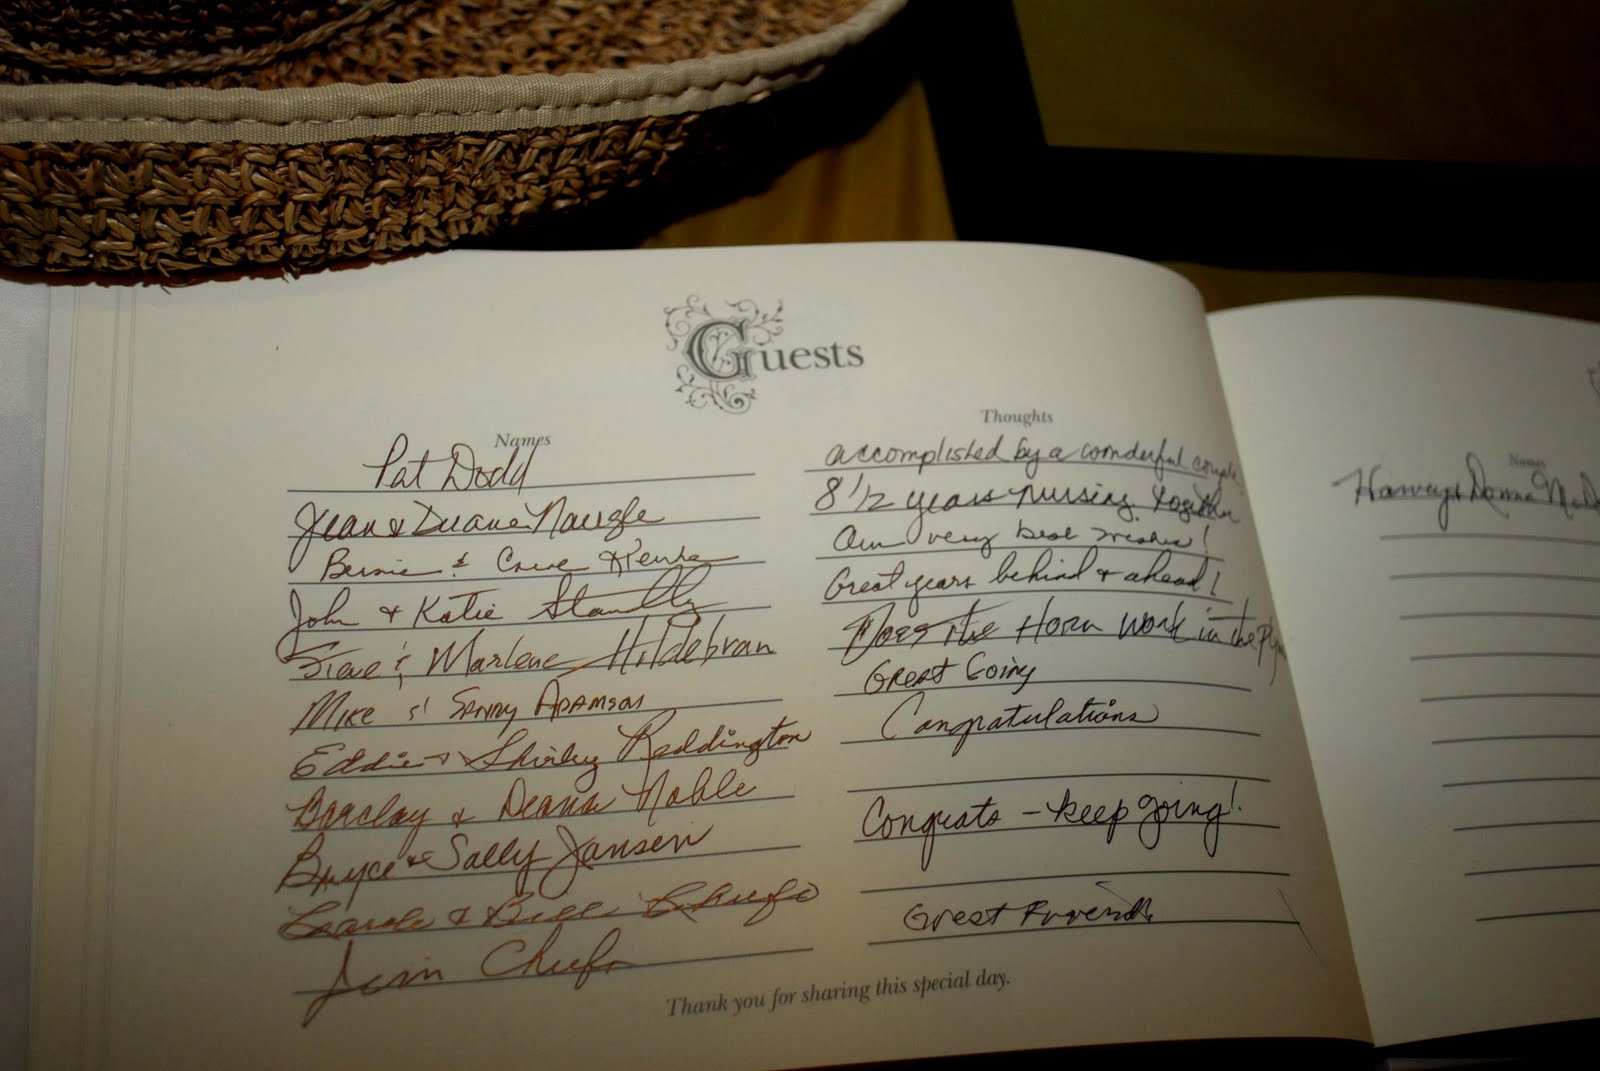 Guests
Names
Thoughts
Pat Dodd
accomplished by a wonderful couple
Jean & Duane Naugle
8 1/2 years nursing together
Bernie &
Our very best wishes!
John & Katie
Great years behind & ahead!
Steve & Marlene Hildebran
Does the Horn work in the
Mike & Sandy Adamson
Great Going
Eddie & Shirley Reddington
Congratulations
Barclay & Deana Noble
Bryce & Sally Jansen
Congrats - keep going!
Carole & Bill Chufo
Jim Chufo
Great Friends
Thank you for sharing this special day.
Names
Harvey & Donna